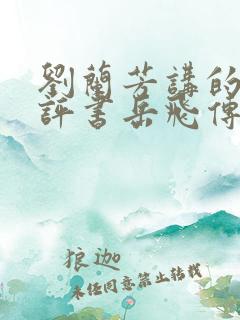 劉蘭芳講的
評書岳飛傳
狼迦
未經同意禁止轉載